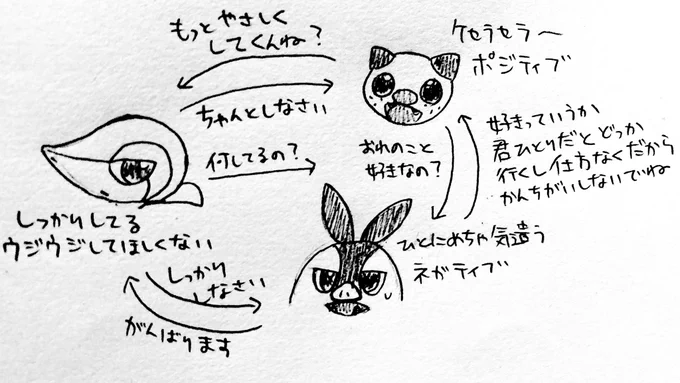 もっとやさしく
してくんね？
ケセラセラ〜
ポジティブ
ちゃんとしなさい
何してるの？
おれのこと
好きなの？
好きっていうか
君ひとりだとどっか
行くし仕方なくだから
かんちがいしないでね
しっかりしてる
ウジウジしてほしくない
ひとにめちゃ気遣う
ネガティブ
しっかり
しなさい
がんばります